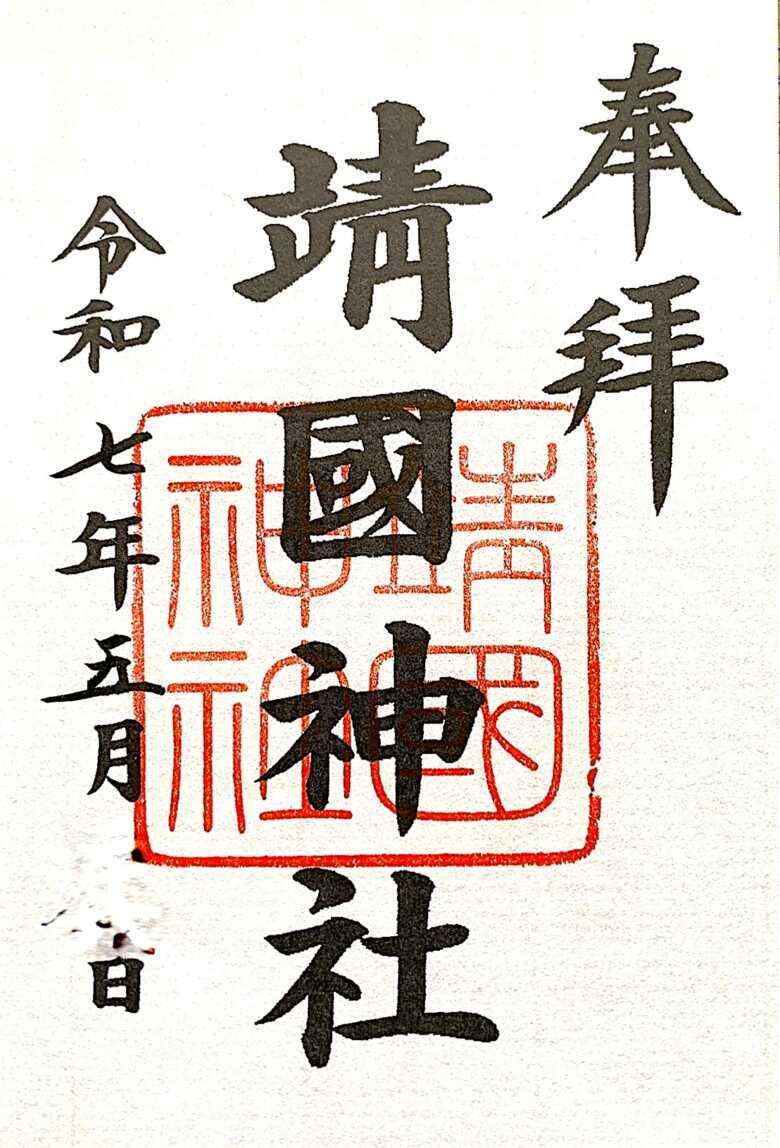 奉拝
靖國神社
靖國
神社
令和七年五月 日